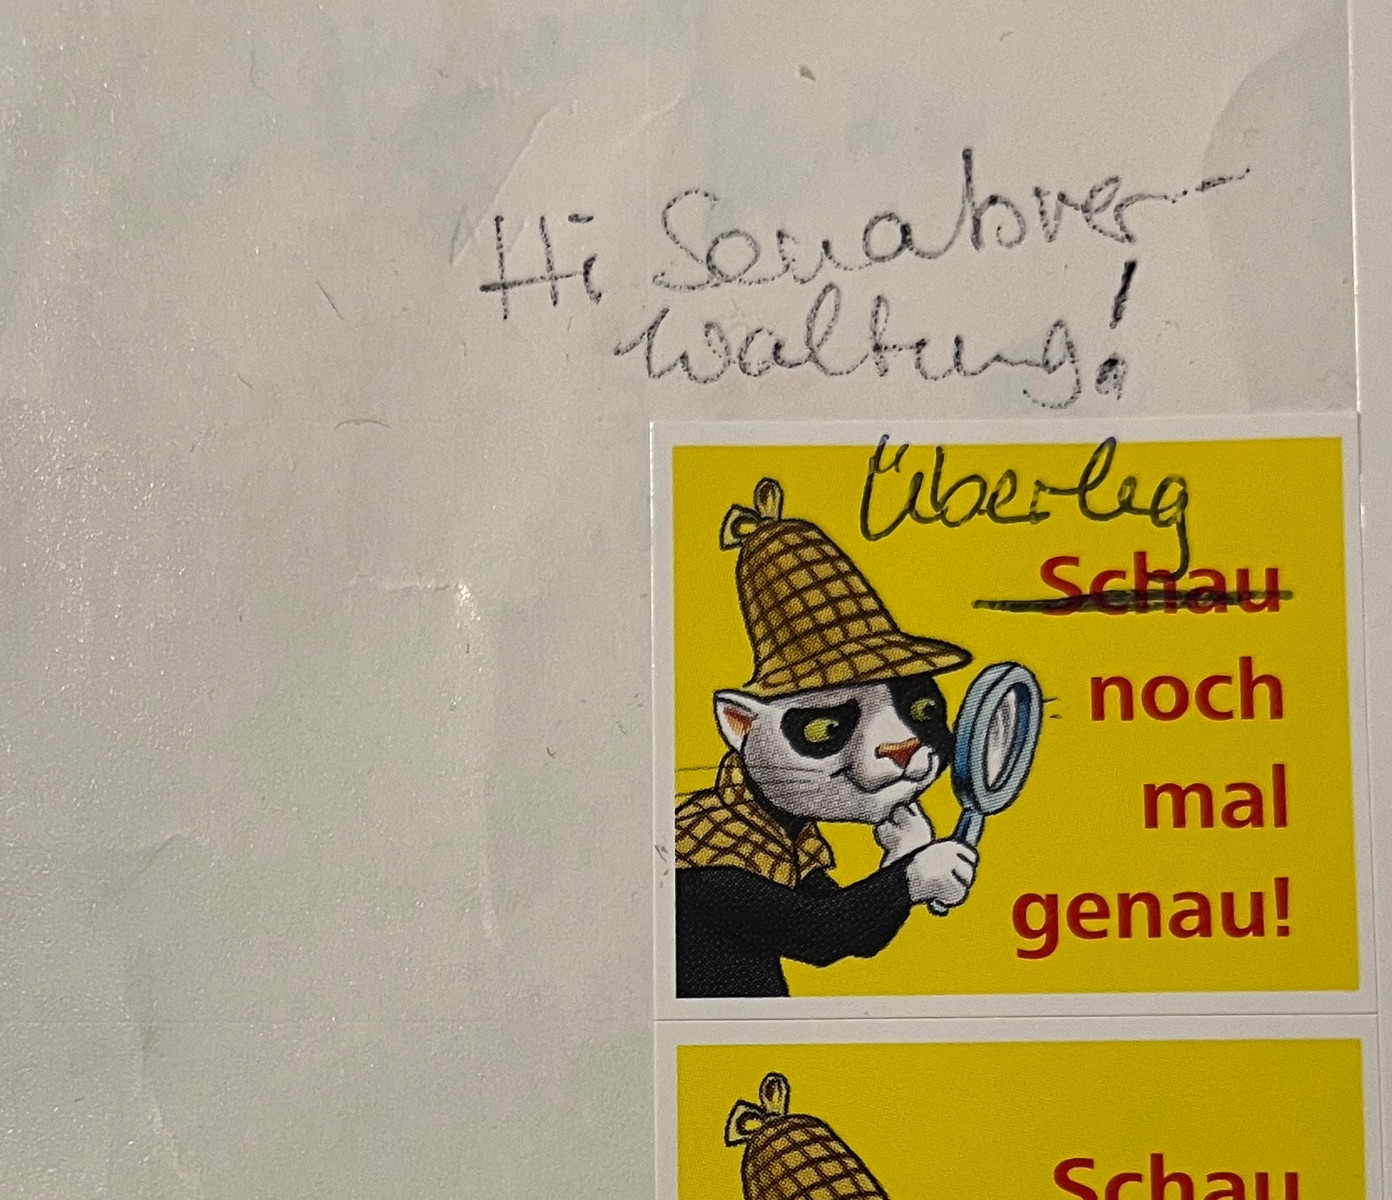 Hi Senatsver-
waltung!
Überleg
Schau
noch
mal
genau!
Schau